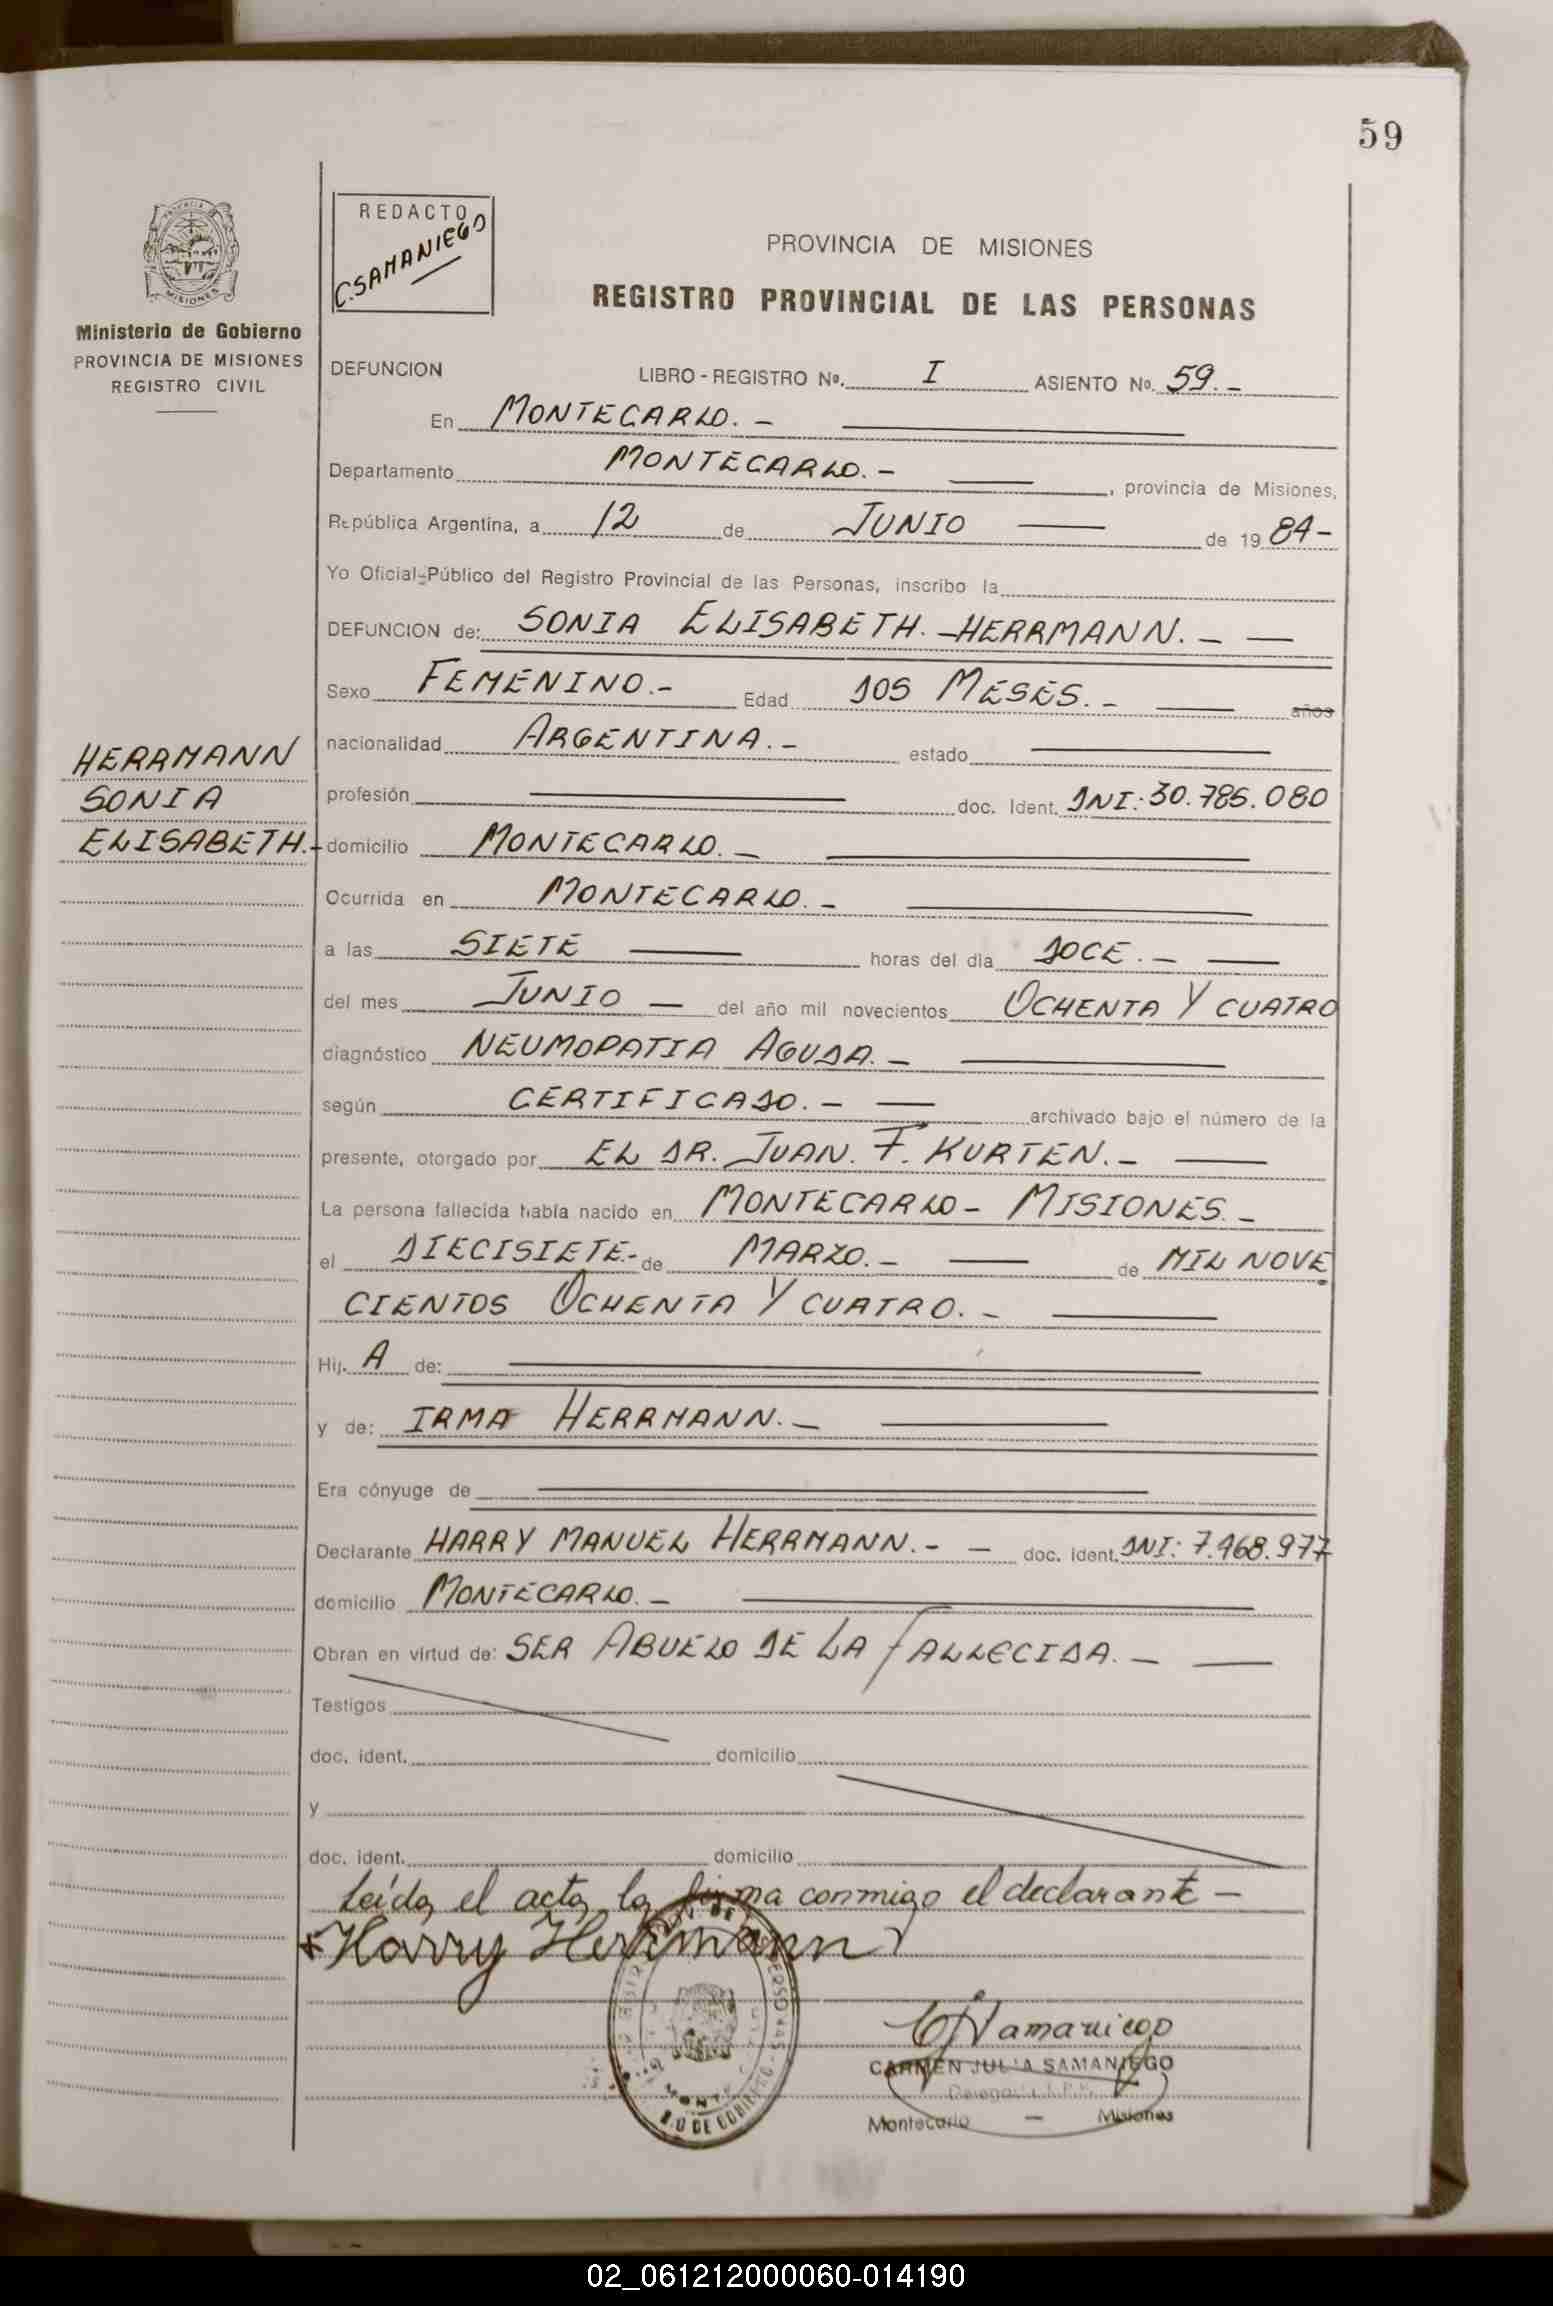 59
REDACTO
C. SAMANIEGO
PROVINCIA DE MISIONES
REGISTRO PROVINCIAL DE LAS PERSONAS
PROVINCIA DE
MISIONES
Ministerio de Gobierno
PROVINCIA DE MISIONES
REGISTRO CIVIL
DEFUNCION LIBRO - REGISTRO Nº. I ASIENTO Nº. 59.-
En MONTECARLO.-
Departamento MONTECARLO.- , provincia de Misiones,
República Argentina, a 12 de JUNIO de 19 84-
Yo Oficial-Público del Registro Provincial de las Personas, inscribo la
DEFUNCION de: SONIA ELISABETH.-HERRMANN.-
Sexo FEMENINO.- Edad DOS MESES.- años
nacionalidad ARGENTINA.- estado
HERRMANN
SONIA
ELISABETH.-
profesión doc. Ident. DNI: 30.785.080
domicilio MONTECARLO.-
Ocurrida en MONTECARLO.-
a las SIETE horas del día DOCE.-
del mes JUNIO - del año mil novecientos OCHENTA Y CUATRO
diagnóstico NEUMOPATIA AGUDA.-
según CERTIFICADO.- archivado bajo el número de la
presente, otorgado por EL DR. JUAN. F. KURTEN.-
La persona fallecida había nacido en MONTECARLO - MISIONES.-
el DIECISIETE.- de MARZO.- de MIL NOVE
CIENTOS OCHENTA Y CUATRO.-
Hij. A de:
y de: IRMA HERRMANN.-
Era cónyuge de
Declarante HARRY MANUEL HERRMANN.- - doc. ident. DNI: 7.468.977
domicilio MONTECARLO.-
Obran en virtud de: SER ABUELO DE LA FALLECIDA.-
Testigos
doc. ident. domicilio
y
doc. ident. domicilio
Leída el acta, la firma conmigo el declarante -
x Harry Herrmann
CJSamaniego
CARMEN JULIA SAMANIEGO
Montecarlo - Misiones
02_061212000060-014190